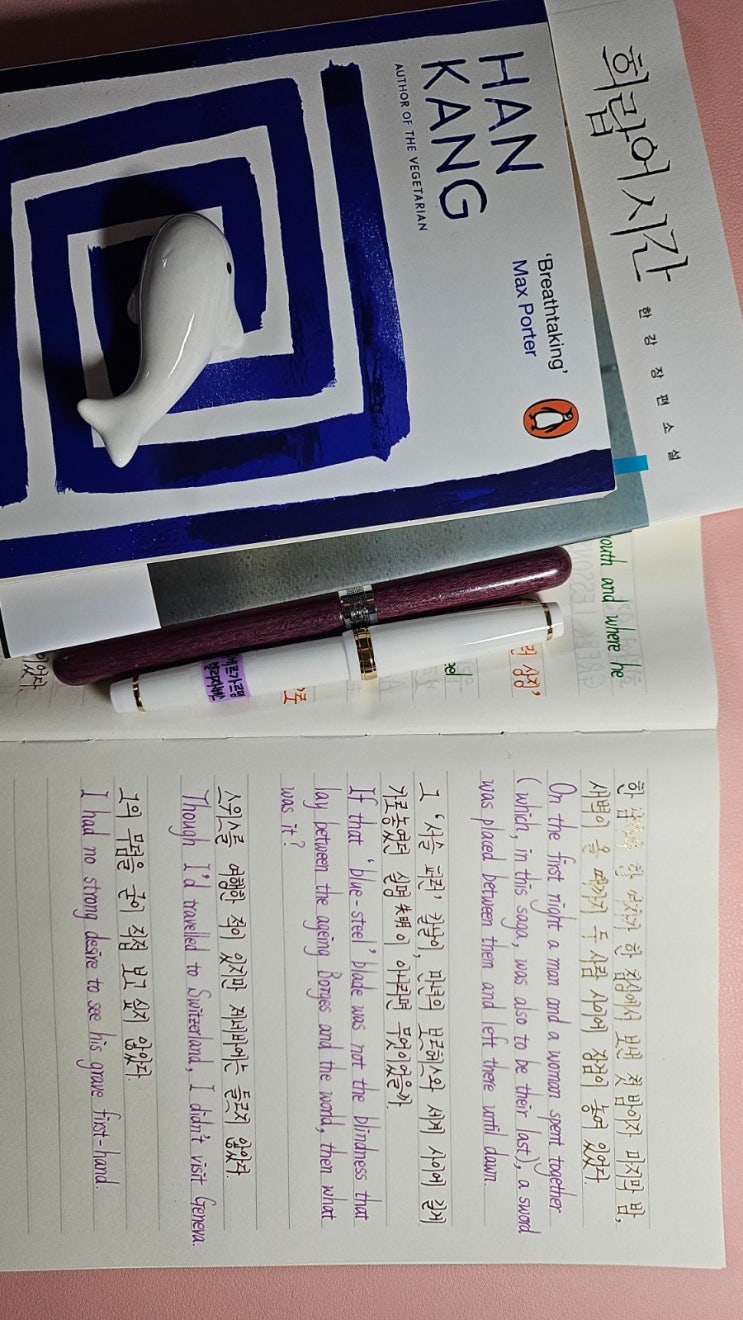 희랍어 시간
한 강 장 편 소 설
HAN
KANG
AUTHOR OF THE VEGETARIAN
'Breathtaking'
Max Porter
and where he
상징'
한 남자와 한 여자가 한 침상에서 보낸 첫 밤이자 마지막 밤,
새벽이 올 때까지 두 사람 사이에 장검이 놓여 있었다.
On the first night a man and a woman spent together
( which, in this saga, was also to be their last), a sword
was placed between them and left there until dawn.
그 '서슬 퍼런' 칼날이, 만년의 보르헤스와 세계 사이에 길게
가로놓였던 실명失明이 아니라면 무엇이었을까.
If that 'blue-steel' blade was not the blindness that
lay between the ageing Borges and the world, then what
was it?
스위스를 여행한 적이 있지만 제네바에는 들르지 않았다.
Though I'd travelled to Switzerland, I didn't visit Geneva.
그의 무덤을 굳이 직접 보고 싶지 않았다.
I had no strong desire to see his grave first-hand.